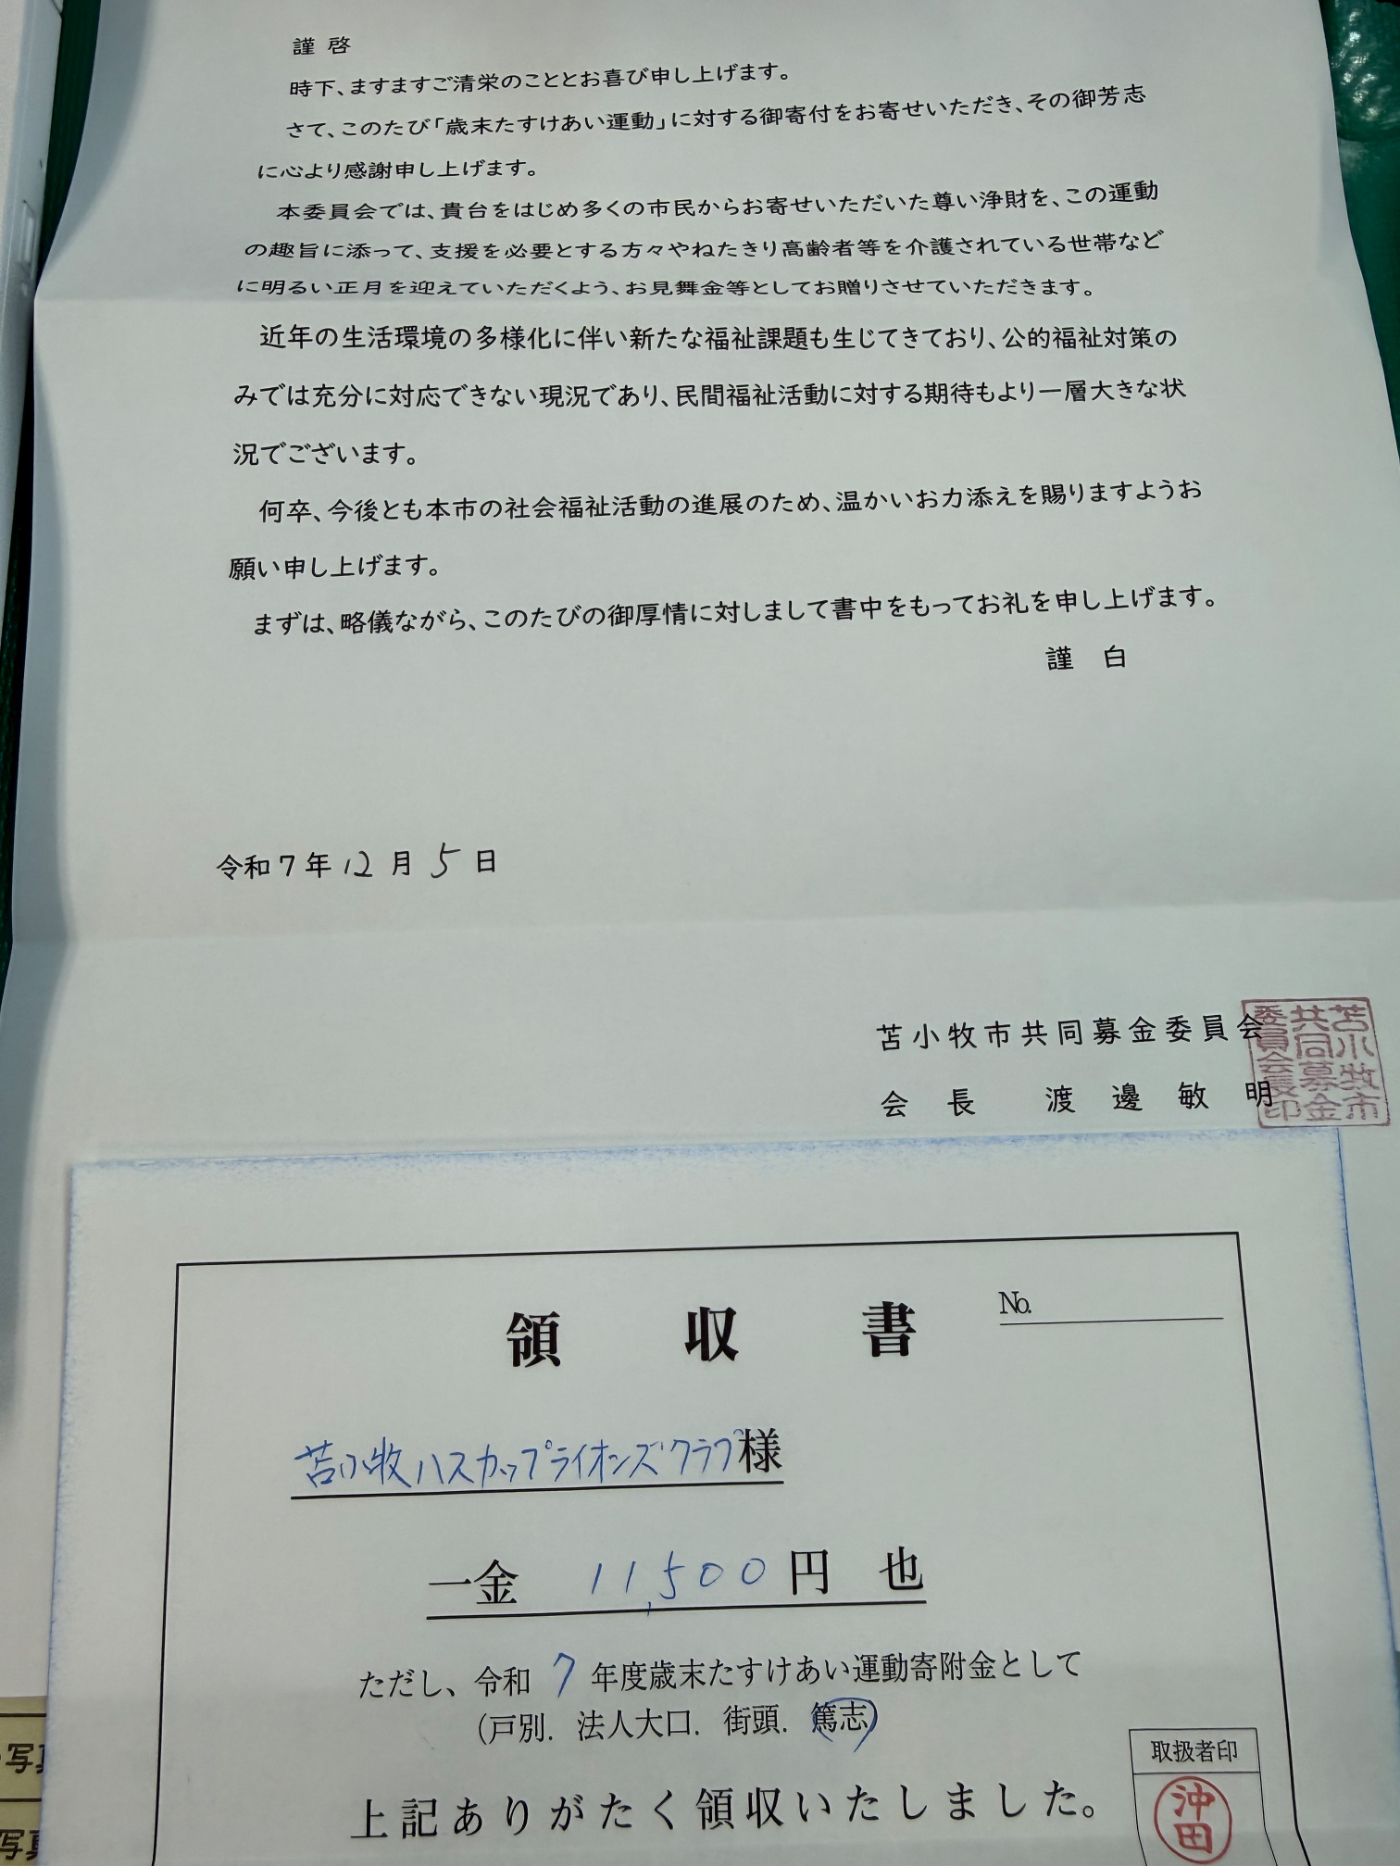 謹啓
時下、ますますご清栄のこととお喜び申し上げます。
さて、このたび「歳末たすけあい運動」に対する御寄付をお寄せいただき、その御芳志
に心より感謝申し上げます。
本委員会では、貴台をはじめ多くの市民からお寄せいただいた尊い浄財を、この運動
の趣旨に添って、支援を必要とする方々やねたきり高齢者等を介護されている世帯など
に明るい正月を迎えていただくよう、お見舞金等としてお贈りさせていただきます。
近年の生活環境の多様化に伴い新たな福祉課題も生じてきており、公的福祉対策の
みでは充分に対応できない現況であり、民間福祉活動に対する期待もより一層大きな状
況でございます。
何卒、今後とも本市の社会福祉活動の進展のため、温かいお力添えを賜りますようお
願い申し上げます。
まずは、略儀ながら、このたびの御厚情に対しまして書中をもってお礼を申し上げます。
謹 白
令和7年12月5日
苫小牧市共同募金委員会
会 長 渡 邊 敏 明
苫小牧市
共同募金
委員会長印
領 収 書
No.
苫小牧ハスカップライオンズクラブ様
一金 11,500円 也
ただし、令和 7 年度歳末たすけあい運動寄附金として
(戸別. 法人大口. 街頭. 篤志)
取扱者印
沖田
上記ありがたく領収いたしました。
写真
写真